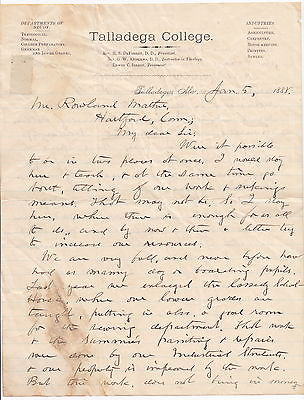 DEPARTMENTS OF STUDY.
THEOLOGICAL,
NORMAL,
COLLEGE PREPARATORY,
GRAMMAR
AND LOWER GRADES.
Talladega College.
REV. H. S. DEFOREST, D. D., President.
REV. G. W. ANDREWS, D. D., Instructor in Theology.
Treasurer.
INDUSTRIES.
AGRICULTURE,
CARPENTRY,
HOUSEKEEPING,
PRINTING,
SEWING.
Talladega, Ala., Jan. 5, 1888.
Mr. Rowland Mather,
Hartford, Conn.;
My dear Sir;
Were it possible
to be in two places at once, I would stay
here & teach, & at the same time go
North, telling of our work & soliciting
means. That may not be. So I stay
here, where there is enough for us all
to do, and by now & then a letter try
to increase our resources.
We are very full, and never before have
had so many day or boarding pupils.
Last year we enlarged the Cassedy School
House, where our lower grades are
taught, putting in also, a good room
for the sewing department. This work
& the Summer's painting & repairs
were done by our Industrial Students,
& our property is improved by the work.
But this work does not bring in money